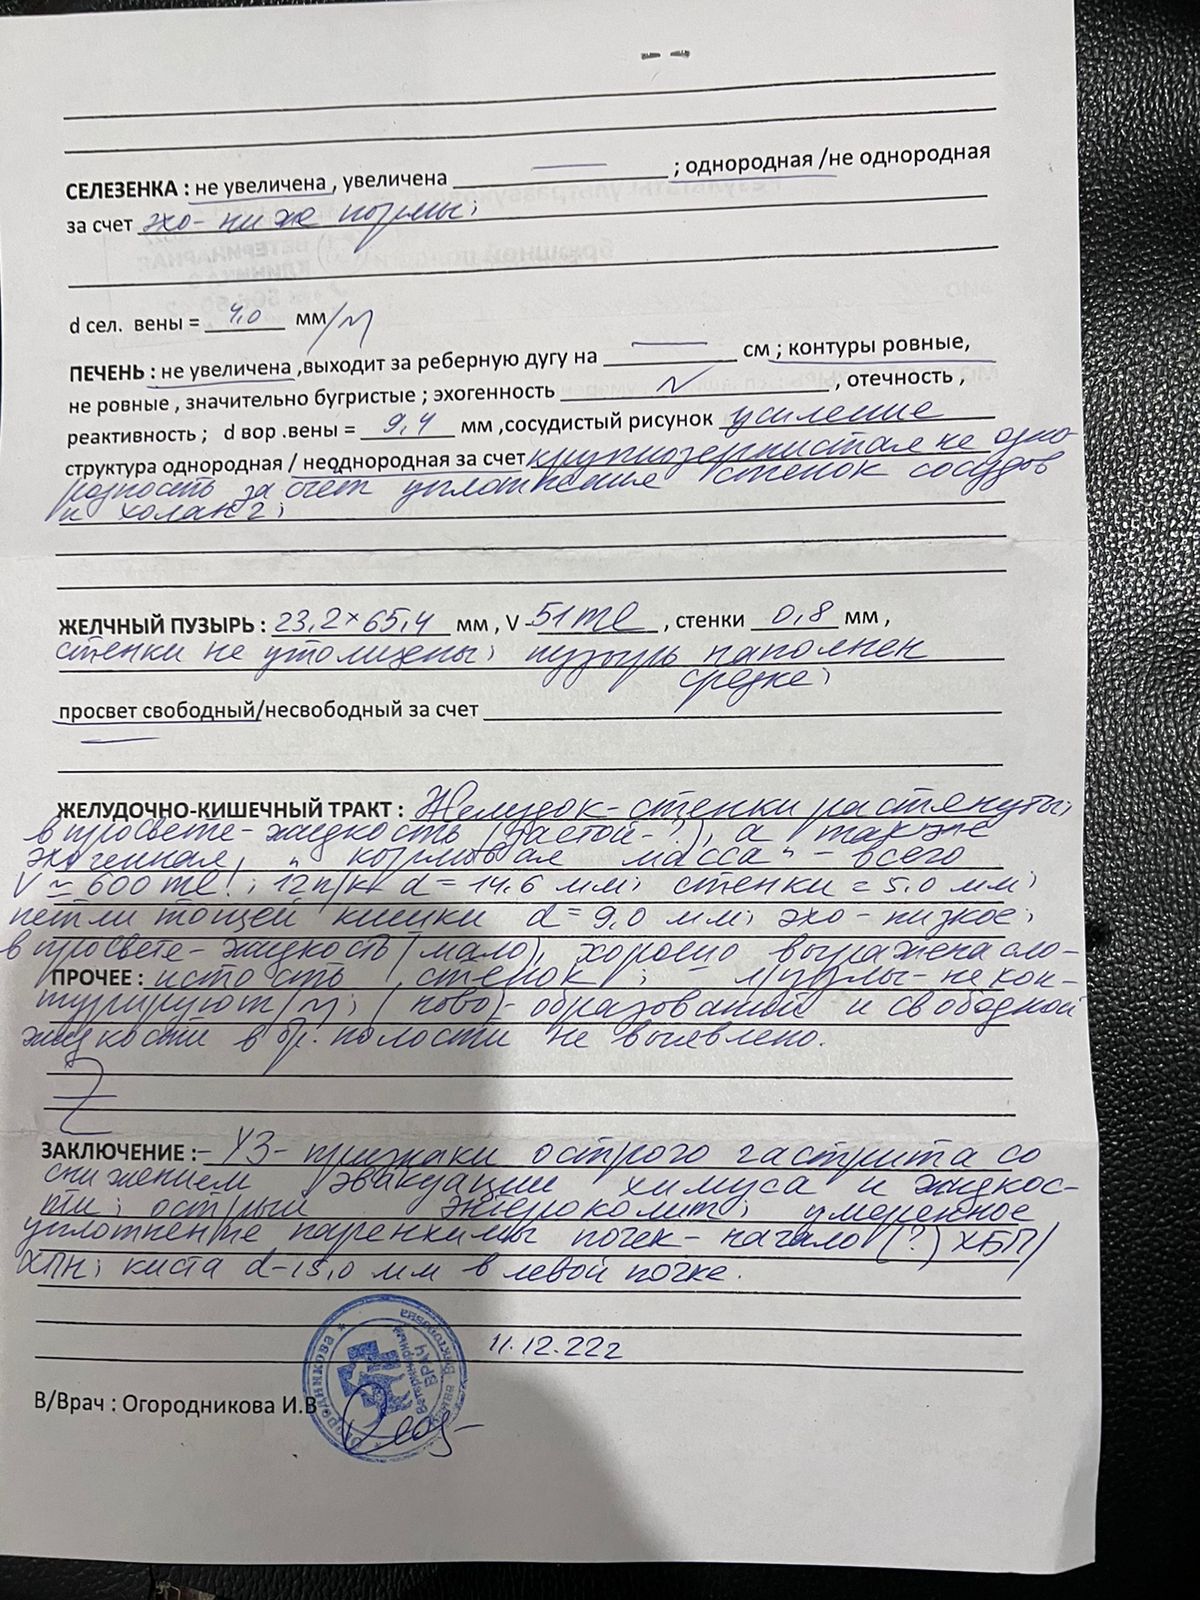 СЕЛЕЗЕНКА : не увеличена , увеличена ; однородная /не однородная
за счет эхо- ниже нормы;
d сел. вены = 4,0 мм /N
ПЕЧЕНЬ : не увеличена ,выходит за реберную дугу на см ; контуры ровные,
не ровные , значительно бугристые ; эхогенность N , отечность ,
реактивность ; d вор .вены = 9,4 мм ,сосудистый рисунок усиление
структура однородная / неоднородная за счет крупнозернистая неодно-
родность за счет уплотнения стенок сосудов
и холанг;
ЖЕЛЧНЫЙ ПУЗЫРЬ : 23,2×65,4 мм , V - 51 ml , стенки 0,8 мм ,
стенки не утолщены; пузырь наполнен
средне;
просвет свободный/несвободный за счет
ЖЕЛУДОЧНО-КИШЕЧНЫЙ ТРАКТ : Желудок- стенки растянуты;
в просвете- жидкость (застой-?), а также
эхогенная, " кормовая масса" - всего
V ≈ 600 ml!; 12п/к d= 14,6 мм; стенки = 5,0 мм;
петли тощей кишки d= 9,0 мм; эхо- низкое;
в просвете- жидкость (мало), хорошо выражена сло-
ПРОЧЕЕ : истость стенок ; - л/узлы- не кон-
турируют /N; (ново)- образований и свободной
жидкости в бр. полости не выявлено.
ЗАКЛЮЧЕНИЕ :- УЗ- признаки острого гастрита со
снижением эвакуации химуса и жидкос-
ти; острый энтероколит; умеренное
уплотнение паренхимы почек- начало (?) ХБП/
ХПН; киста d-15,0 мм в левой почке.
11.12.22г
В/Врач : Огородникова И.В
Ветеринарный
ВРАЧ